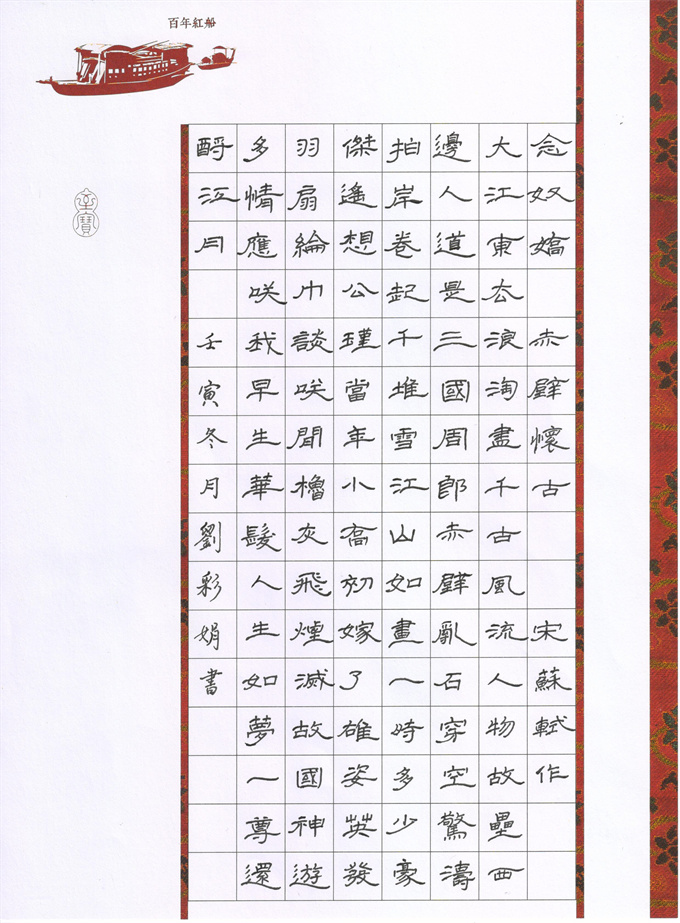 百年紅船
念奴嬌 赤壁懷古 宋蘇軾作
大江東厺浪淘盡千古風流人物故壘西
邊人道是三國周郎赤壁亂石穿空驚濤
拍岸卷起千堆雪江山如畫一時多少豪
傑遙想公瑾當年小喬初嫁了雄姿英發
羽扇綸巾談咲間櫓灰飛煙滅故國神遊
多情應咲我早生華髮人生如夢一尊還
酹江月 壬寅冬月劉彩娟書